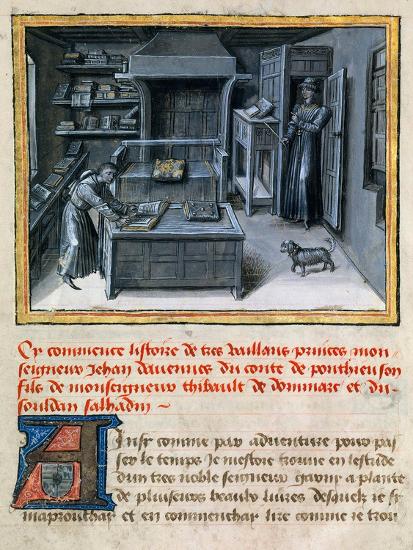 Cy commence listoire de tres vaillans princes mon-
seigneur Jehan davennes du conte de ponthieu son
filz de monseigneur thibault de dommarc et du
souldan salhadin
Ainsi comme par adventure pour pas
ser le temps Je mestoie trouve en lestude
dun tres noble seigneur garny a plante
de pluiseurs beaulx livres desquelz je
maprouchay et en commenchay lire comme Je trou